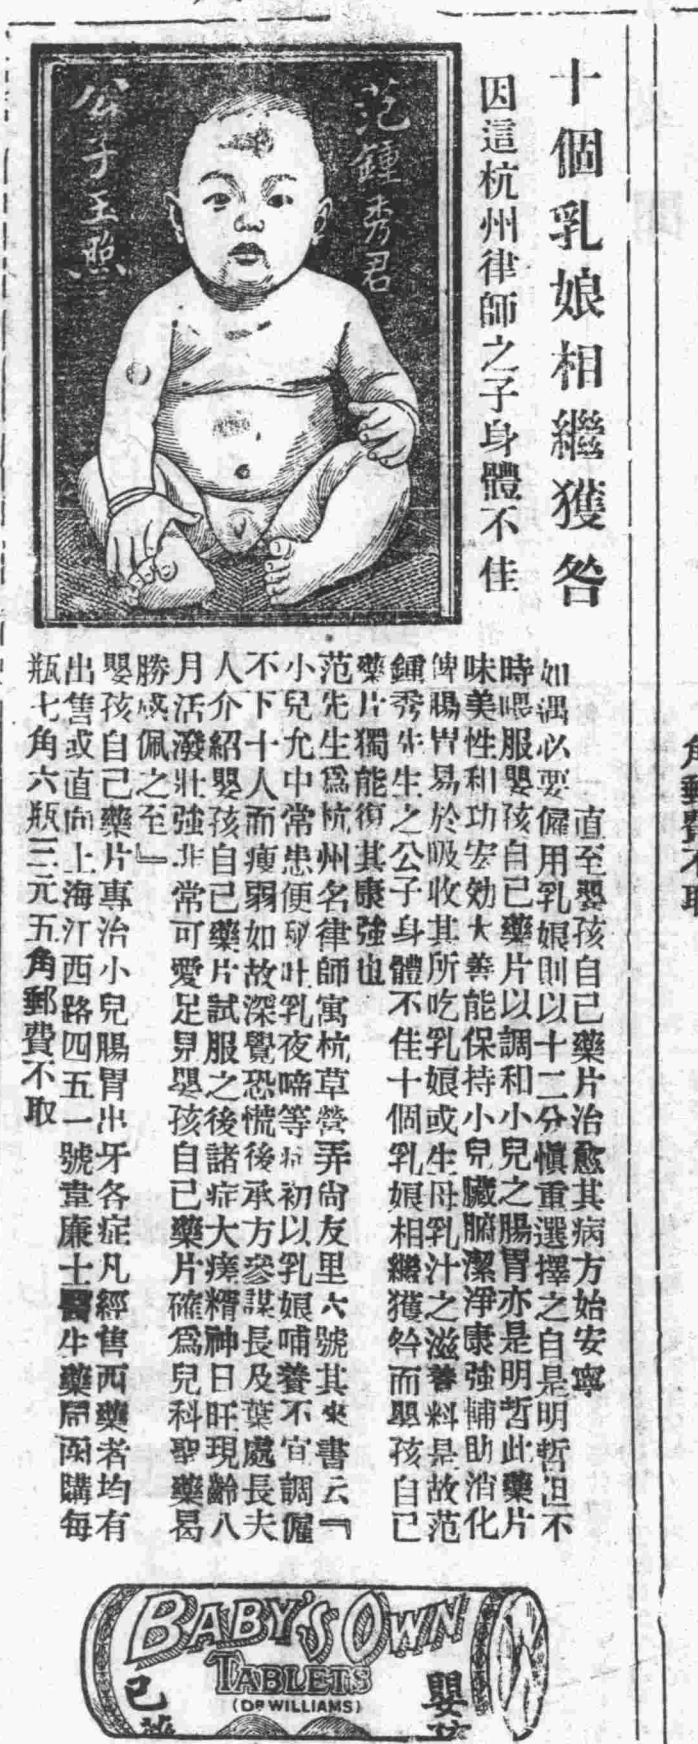 十個乳娘相繼獲咎
因這杭州律師之子身體不佳
范鍾秀君
公子玉照
直至嬰孩自己藥片治愈其病方始安寧
如遇必要僱用乳娘則以十二分愼重選擇之自是明哲但不
時喂服嬰孩自己藥片以調和小兒之腸胃亦是明哲此藥片
味美性和功宏効大善能保持小兒臟腑潔淨康強輔助消化
俾腸胃易於吸收其所吃乳娘或生母乳汁之滋養料是故范
鍾秀先生之公子身體不佳十個乳娘相繼獲咎而嬰孩自己
藥片獨能復其康強也
范先生爲杭州名律師寓杭草營弄尙友里六號其來書云『
小兒允中常患便秘吐乳夜啼等症初以乳娘哺養不宜調僱
不下十人而瘦弱如故深覺恐慌後承方參謀長及葉處長夫
人介紹嬰孩自己藥片試服之後諸症大瘳精神日旺現齡八
月活潑壯強非常可愛足見嬰孩自己藥片確爲兒科聖藥曷
勝感佩之至』
嬰孩自己藥片專治小兒腸胃出牙各症凡經售西藥者均有
出售或直向上海江西路四五一號韋廉士醫生藥局函購每
瓶七角六瓶三元五角郵費不取
BABY'S OWN
TABLETS
(DR WILLIAMS)
嬰孩
己
角郵費不取